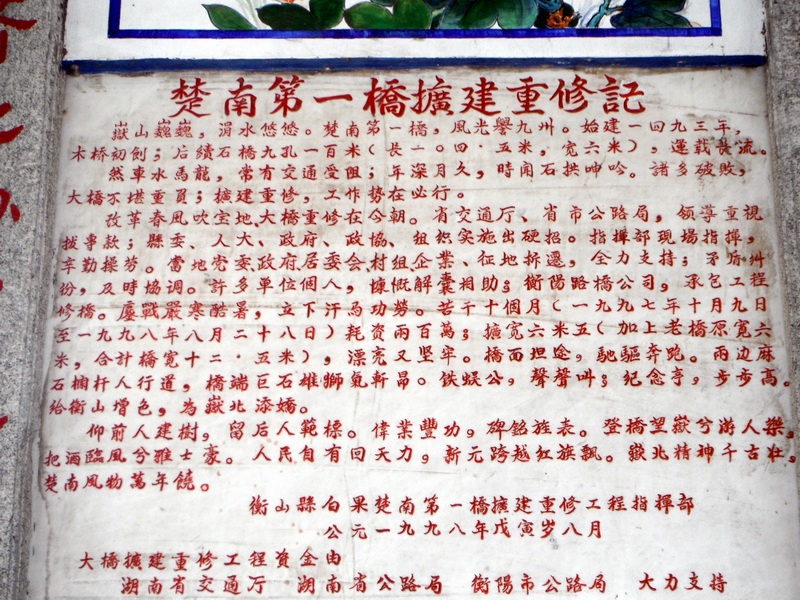 楚南第一橋擴建重修記
嶽山巍巍，涓水悠悠。楚南第一橋，風光譽九州。始建一四九三年，
木桥初刨；后續石橋九孔一百米（長一〇四·五米，寬六米），運載長流。
然車水馬龍，常有交通受阻；年深月久，時聞石拱呻吟。諸多破敗，
大橋不堪重負；擴建重修，工作势在必行。
改革春風吹宝地、大橋重修在今朝。省交通厅、省市公路局，領導重視
拔專款；縣委、人大、政府、政協、组织实施出硬招。指揮部現場指揮，
辛勤操劳。當地党委、政府、居委会、村组企業、征地拆遷，全力支持；矛盾纠
纷，及時協调。許多单位個人，慷慨解囊相助；衡陽路橋公司，承包工程
修橋。屢戰嚴寒酷暑，立下汗馬功勞。苦干十個月（一九九七年十月九日
至一九九八年八月二十八日）耗资兩百萬；擴宽六米五（加上老橋原寬六
米，合計橋寬十二·五米），漂亮又坚牢。橋面坦途，馳驅奔跑。兩边麻
石栏杆人行道，橋端巨石雄獅氣軒昂。铁蜈公，聲聲叫；纪念亭，步步高。
给衡山增色，為嶽北添嬌。
仰前人建樹，留后人範標。偉業豐功，碑銘旌表。登橋望嶽兮游人樂，
把酒臨風兮雅士豪。人民自有回天力，新元跨越红旌飄。嶽北精神千古壮，
楚南風物萬年饒。
衡山縣白果楚南第一橋擴建重修工程指揮部
公元一九九八年戊寅岁八月
大橋擴建重修工程资金由
湖南省交通厅 湖南省公路局 衡陽市公路局 大力支持